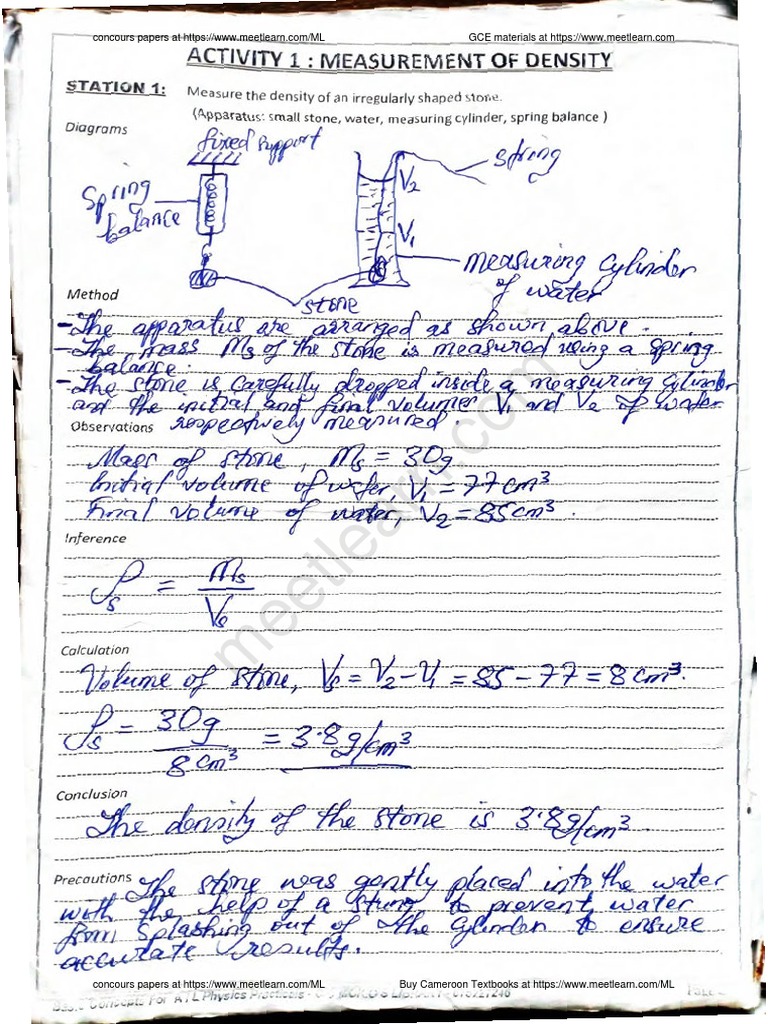 concours papers at https://www.meetlearn.com/ML GCE materials at https://www.meetlearn.com
ACTIVITY 1 : MEASUREMENT OF DENSITY
STATION 1: Measure the density of an irregularly shaped stone.
(Apparatus: small stone, water, measuring cylinder, spring balance )
Diagrams
fixed support
string
Spring
balance
V2
V1
measuring cylinder
of water
stone
Method
- The apparatus are arranged as shown above.
- The mass Ms of the stone is measured using a spring
balance.
- The stone is carefully dropped inside a measuring cylinder
and the initial and final volumes V1 and V2 of water
Observations respectively measured.
Mass of stone, Ms = 30g
Initial volume of water, V1 = 77cm³
Final volume of water, V2 = 85cm³.
Inference
ρs = Ms
Vs
Calculation
Volume of stone, Vs = V2 - V1 = 85 - 77 = 8cm³.
ρs = 30g = 3.8g/cm³
8cm³
Conclusion
The density of the stone is 3.8g/cm³
Precautions The stone was gently placed into the water
with the help of a string to prevent water
from splashing out of the cylinder to ensure
accurate results.
concours papers at https://www.meetlearn.com/ML Buy Cameroon Textbooks at https://www.meetlearn.com/ML
Concepts For A'TL Physics Practicals
meetlearn.com